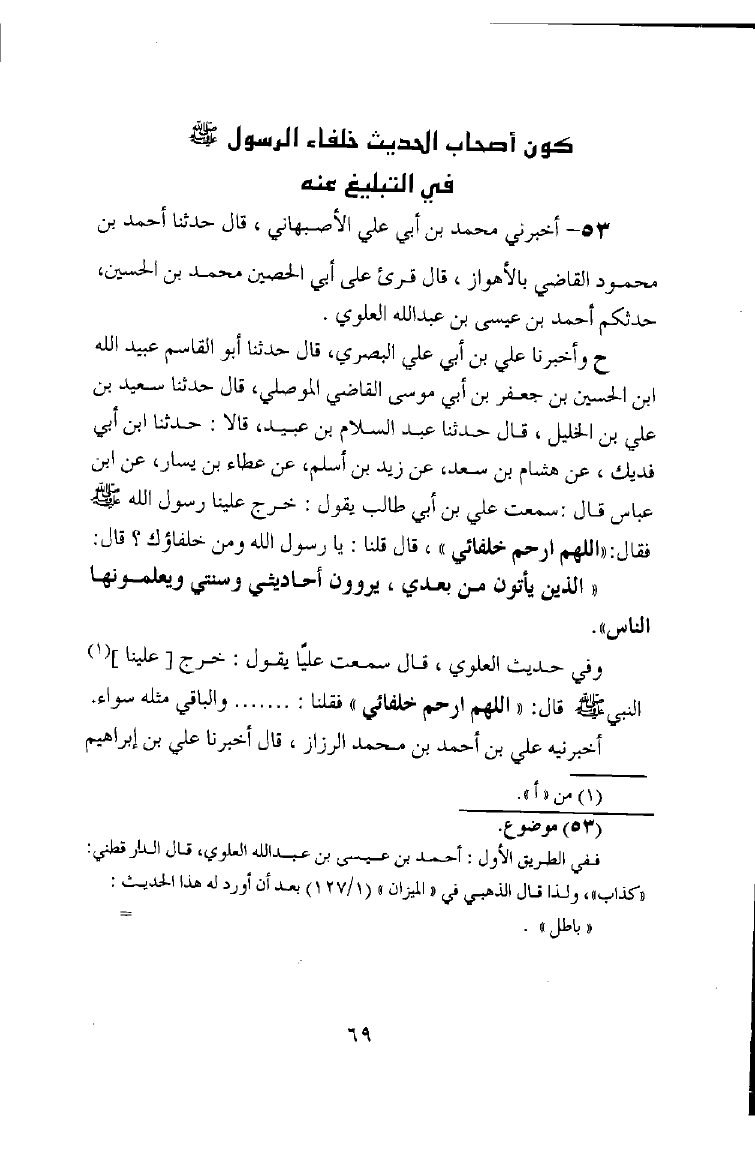 كون أصحاب الحديث خلفاء الرسول ﷺ
في التبليغ عنه
٥٣- أخبرني محمد بن أبي علي الأصبهاني ، قال حدثنا أحمد بن
محمود القاضي بالأهواز ، قال قرئ على أبي الحصين محمد بن الحسين،
حدثكم أحمد بن عيسى بن عبدالله العلوي .
ح وأخبرنا علي بن أبي علي البصري، قال حدثنا أبو القاسم عبيد الله
ابن الحسين بن جعفر بن أبي موسى القاضي الموصلي، قال حدثنا سعيد بن
علي بن الخليل ، قال حدثنا عبد السلام بن عبيد، قالا : حدثنا ابن أبي
فديك ، عن هشام بن سعد، عن زيد بن أسلم، عن عطاء بن يسار، عن ابن
عباس قال :سمعت علي بن أبي طالب يقول : خرج علينا رسول الله ﷺ
فقال:«اللهم ارحم خلفائي » ، قال قلنا : يا رسول الله ومن خلفاؤك ؟ قال:
« الذين يأتون من بعدي ، يروون أحاديثي وسنتي ويعلمونها
الناس».
وفي حديث العلوي ، قال سمعت عليًّا يقول : خرج [ علينا ](١)
النبي ﷺ قال: « اللهم ارحم خلفائي » فقلنا : ....... والباقي مثله سواء.
أخبرنيه علي بن أحمد بن محمد الرزاز ، قال أخبرنا علي بن إبراهيم
(١) من « أ ».
(٥٣) موضوع.
ففي الطريق الأول : أحمد بن عيسى بن عبدالله العلوي، قال الدار قطني:
«كذاب»، ولذا قال الذهبي في « الميزان » (١٢٧/١) بعد أن أورد له هذا الحديث :
« باطل » .
=
٦٩